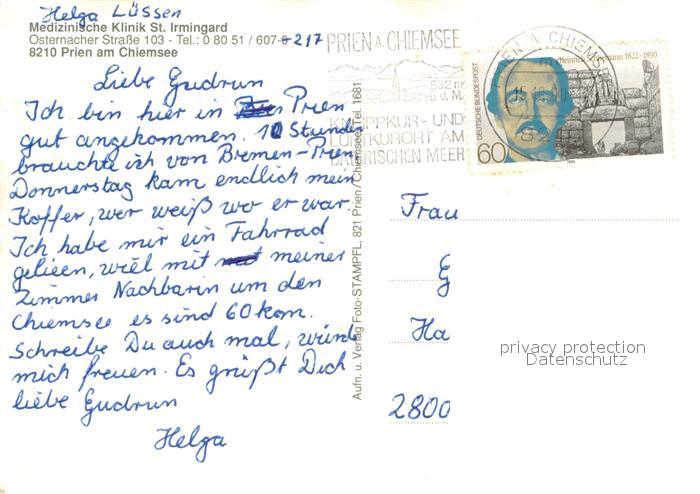 Helga Lüssen
Medizinische Klinik St. Irmingard
Osternacher Straße 103 - Tel.: 0 80 51 / 607-0-217
8210 Prien am Chiemsee
Liebe Gudrun
Ich bin hier in Prien
gut angekommen. 10 Stunden
brauchte ich von Bremen-Prien
Donnerstag kam endlich mein
Koffer, wer weiß wo er war.
Ich habe mir ein Fahrrad
gelieen, wiel mit meiner
Zimmer Nachbarin um den
Chiemsee es sind 60 km.
Schreibe Du auch mal, würde
mich freuen. Es grüßt Dich
liebe Gudrun
Helga
Aufn. u. Verlag Foto-STAMPFL, 821 Prien/Chiemsee, Tel. 1681
PRIEN A. CHIEMSEE
532 m
ü. d. M.
KNEIPPKUR- UND
LUFTKURORT AM
BAYERISCHEN MEER
PRIEN A CHIEMS
82
DEUTSCHE BUNDESPOST
Heinrich Schliemann 1822-1890
60
1990
Frau
G
Ha
2800
privacy protection
Datenschutz